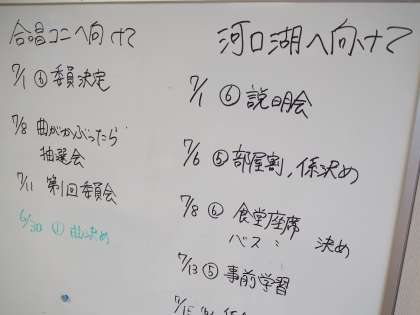 合唱コンへ向けて
7/1 ⑥ 委員決定
7/8 曲がかぶったら
抽選会
7/11 第1回委員会
6/30 ① 曲決め
河口湖へ向けて
7/1 ⑥ 説明会
7/6 ⑤ 部屋割、係決め
7/8 ⑥ 食堂座席
バス 〃 決め
7/13 ⑤ 事前学習
7/15